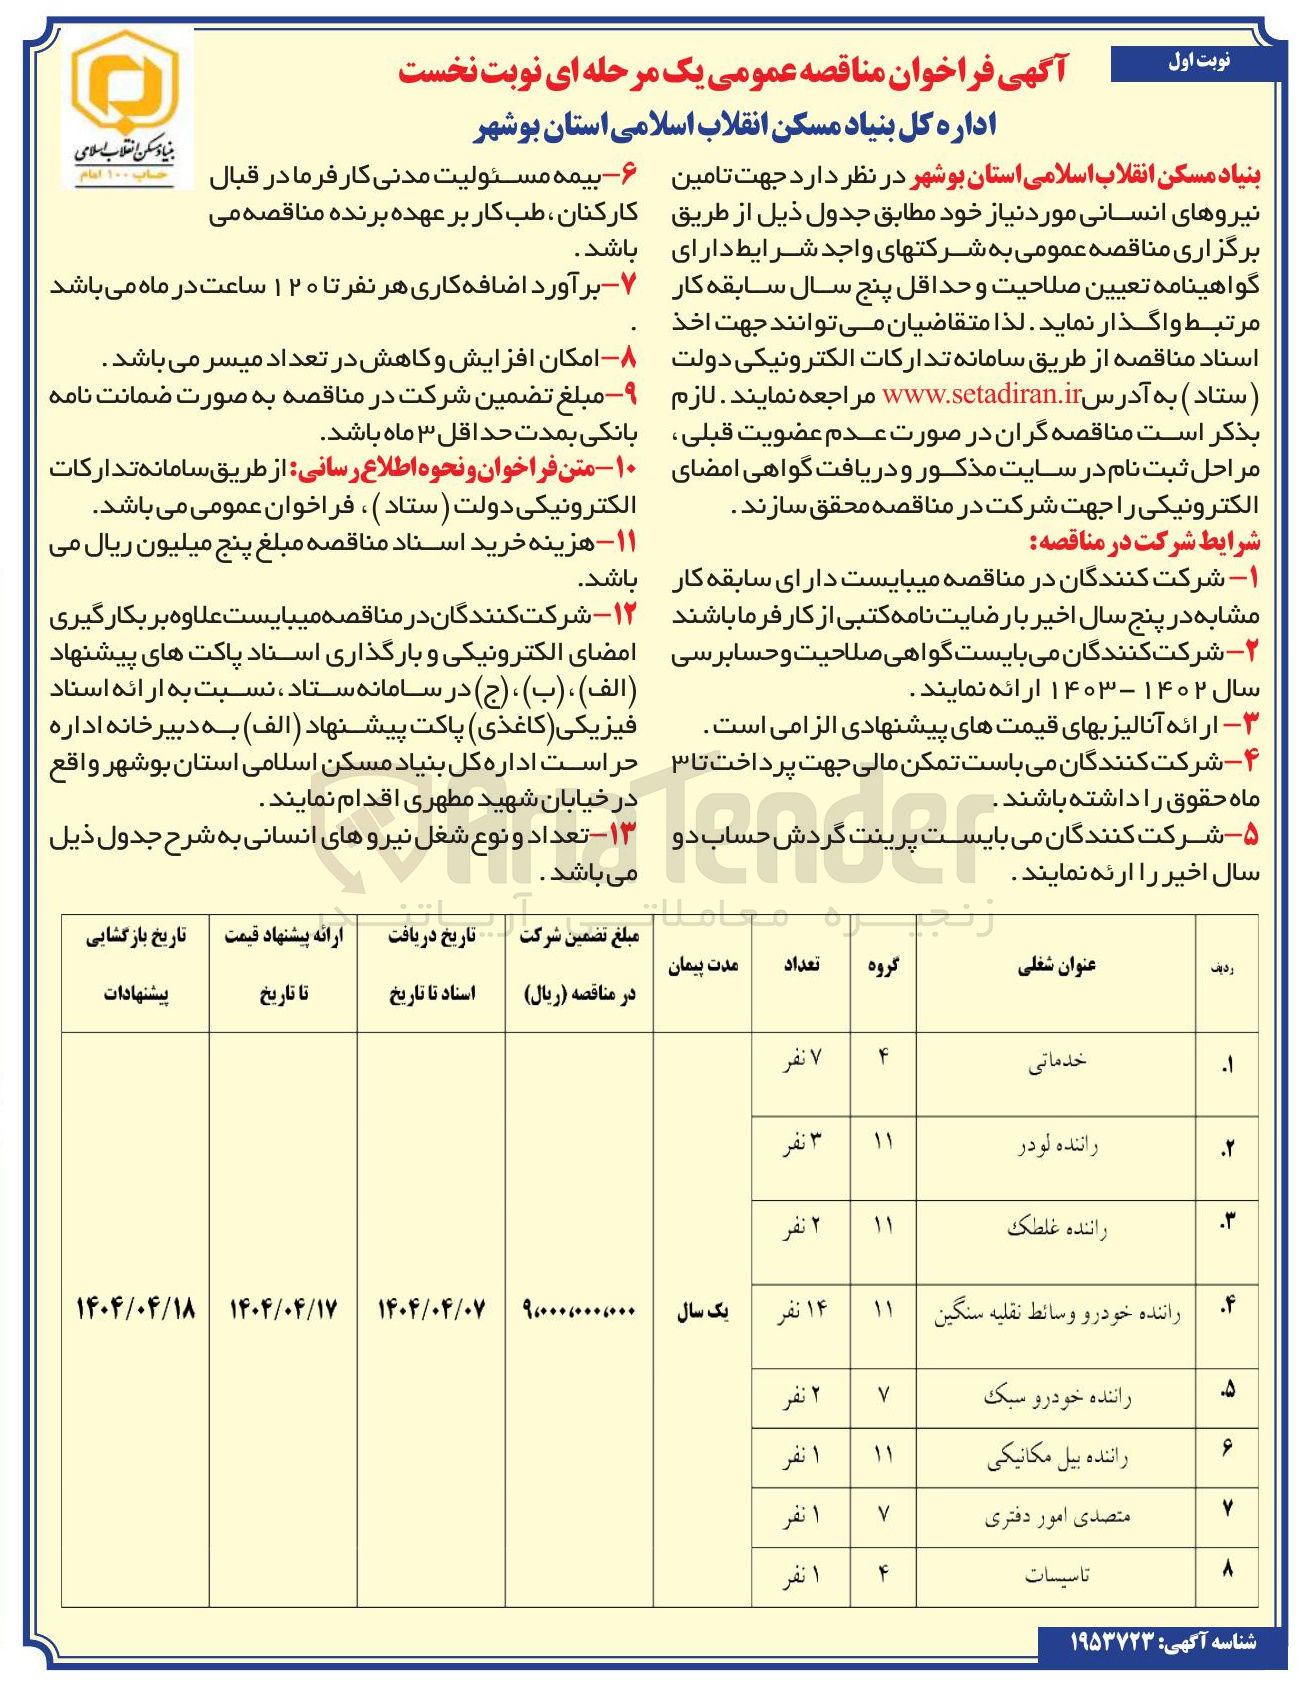 نوبت اول
آگهی فراخوان مناقصه عمومی یک مرحله ای نوبت نخست
اداره کل بنیاد مسکن انقلاب اسلامی استان بوشهر
بنیاد مسکن انقلاب اسلامی
حساب ۱۰۰ امام
بنیاد مسکن انقلاب اسلامی استان بوشهر در نظر دارد جهت تامین
نیروهای انسانی موردنیاز خود مطابق جدول ذیل از طریق
برگزاری مناقصه عمومی به شرکتهای واجد شرایط دارای
گواهینامه تعیین صلاحیت و حداقل پنج سال سابقه کار
مرتبط واگذار نماید . لذا متقاضیان می توانند جهت اخذ
اسناد مناقصه از طریق سامانه تدارکات الکترونیکی دولت
(ستاد) به آدرس www.setadiran.ir مراجعه نمایند . لازم
بذکر است مناقصه گران در صورت عدم عضویت قبلی ،
مراحل ثبت نام در سایت مذکور و دریافت گواهی امضای
الکترونیکی را جهت شرکت در مناقصه محقق سازند .
شرایط شرکت در مناقصه:
۱- شرکت کنندگان در مناقصه میبایست دارای سابقه کار
مشابه در پنج سال اخیر با رضایت نامه کتبی از کارفرما باشند
۲- شرکت کنندگان می بایست گواهی صلاحیت و حسابرسی
سال ۱۴۰۲ - ۱۴۰۳ ارائه نمایند .
۳- ارائه آنالیزبهای قیمت های پیشنهادی الزامی است .
۴- شرکت کنندگان می باست تمکن مالی جهت پرداخت تا ۳
ماه حقوق را داشته باشند .
۵- شرکت کنندگان می بایست پرینت گردش حساب دو
سال اخیر را ارئه نمایند .
۶- بیمه مسئولیت مدنی کارفرما در قبال
کارکنان ، طب کار بر عهده برنده مناقصه می
باشد .
۷- برآورد اضافه کاری هر نفر تا ۱۲۰ ساعت در ماه می باشد
.
۸- امکان افزایش و کاهش در تعداد میسر می باشد .
۹- مبلغ تضمین شرکت در مناقصه به صورت ضمانت نامه
بانکی بمدت حداقل ۳ ماه باشد.
۱۰- متن فراخوان و نحوه اطلاع رسانی: از طریق سامانه تدارکات
الکترونیکی دولت (ستاد) ، فراخوان عمومی می باشد.
۱۱- هزینه خرید اسناد مناقصه مبلغ پنج میلیون ریال می
باشد.
۱۲- شرکت کنندگان در مناقصه میبایست علاوه بر بکارگیری
امضای الکترونیکی و بارگذاری اسناد پاکت های پیشنهاد
(الف)، (ب)، (ج) در سامانه ستاد ، نسبت به ارائه اسناد
فیزیکی (کاغذی) پاکت پیشنهاد (الف) به دبیرخانه اداره
حراست اداره کل بنیاد مسکن اسلامی استان بوشهر واقع
در خیابان شهید مطهری اقدام نمایند .
۱۳- تعداد و نوع شغل نیروهای انسانی به شرح جدول ذیل
می باشد .
AriaTender
زنجیره معاملاتی آریاتندر
ردیف عنوان شغلی گروه تعداد مدت پیمان مبلغ تضمین شرکت در مناقصه (ریال) تاریخ دریافت اسناد تا تاریخ ارائه پیشنهاد قیمت تا تاریخ تاریخ بازگشایی پیشنهادات
۱. خدماتی ۴ ۷ نفر
۲. راننده لودر ۱۱ ۳ نفر
۳. راننده غلطک ۱۱ ۲ نفر
۴. راننده خودرو وسائط نقلیه سنگین ۱۱ ۱۴ نفر یک سال ۹،۰۰۰،۰۰۰،۰۰۰ ۱۴۰۴/۰۴/۰۷ ۱۴۰۴/۰۴/۱۷ ۱۴۰۴/۰۴/۱۸
۵. راننده خودرو سبک ۷ ۲ نفر
۶ راننده بیل مکانیکی ۱۱ ۱ نفر
۷ متصدی امور دفتری ۷ ۱ نفر
۸ تاسیسات ۴ ۱ نفر
شناسه آگهی: ۱۹۵۳۷۲۳